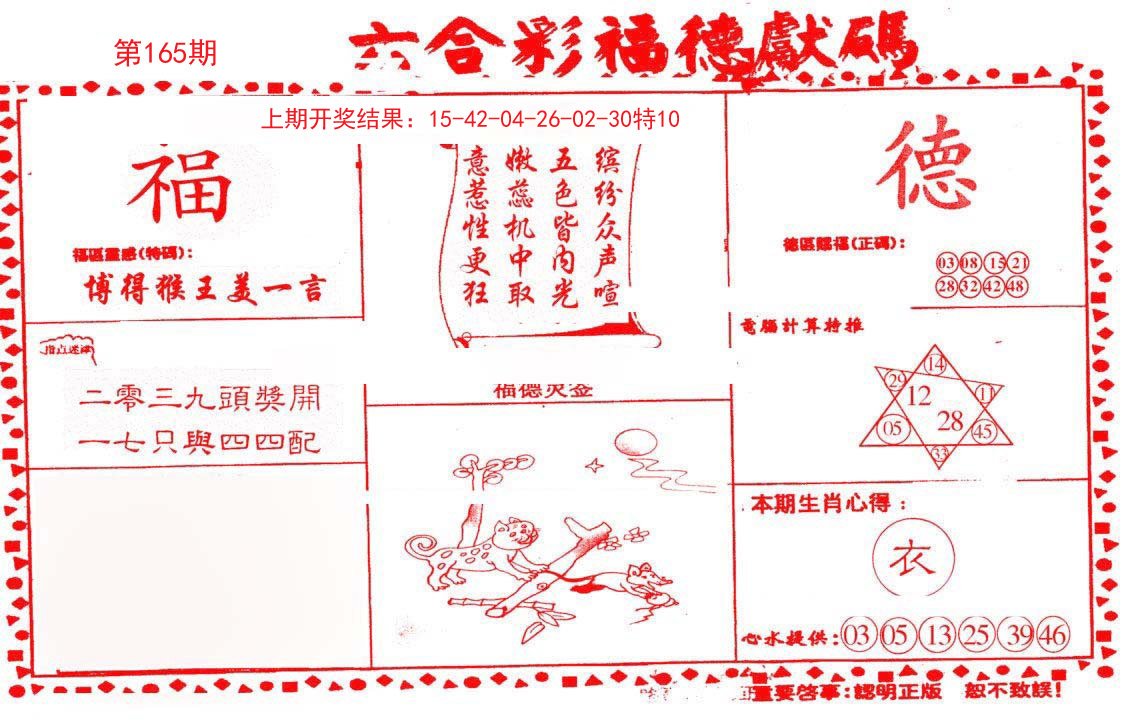 第165期
六合彩福德獻碼
上期开奖结果：15-42-04-26-02-30特10
福
福區靈感(特碼)：
博得猴王美一言
缤纷众声喧
五色皆内光
嫩蕊机中取
意惹性更狂
德
德區賜福(正碼)：
03 08 15 21
28 32 42 48
指点迷津
二零三九頭獎開
一七只與四四配
福德灵签
電腦計算特推
14
29
12
11
05
28
45
33
本期生肖心得：
衣
心水提供：03 05 13 25 39 46
重要啓事：認明正版 恕不致誤！